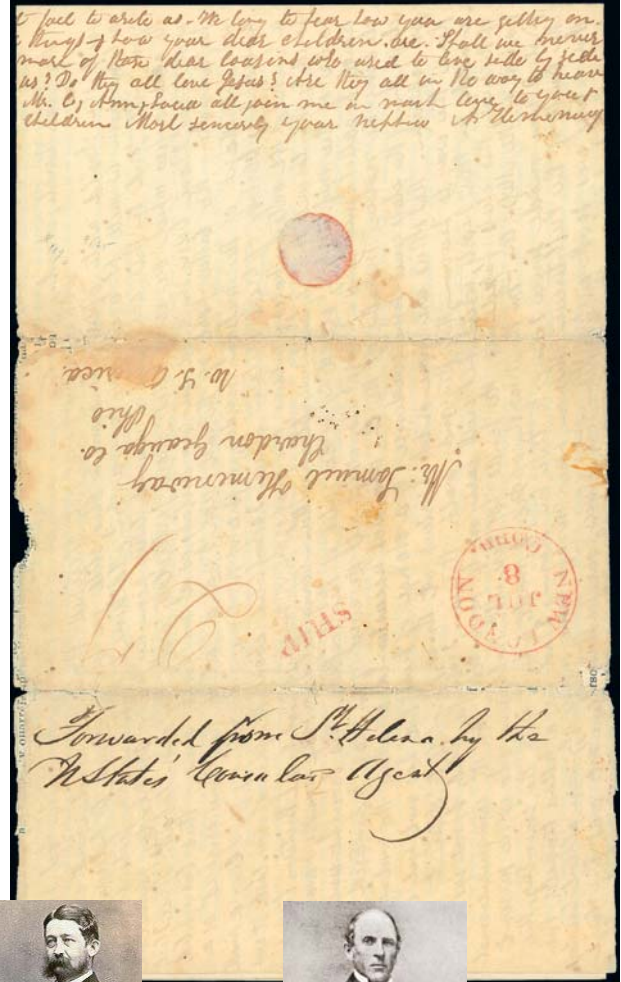 fail to write us. We long to hear how you are getting on.
things & how your dear children are. Shall we never
more of those dear cousins who used to live side by side
us? Do they all love Jesus? Are they all in the way to heaven
Mr. C, Ann, Lucia all join me in much love to you &
children Most sincerely your nephew A Hemenway
Mr. Samuel Hemenway
Chardon Geauga Co.
Ohio
N. S. America.
NEW LONDON CONN.
JUL
8
SHIP
Forwarded from St. Helena by the
UStates Consular Agent